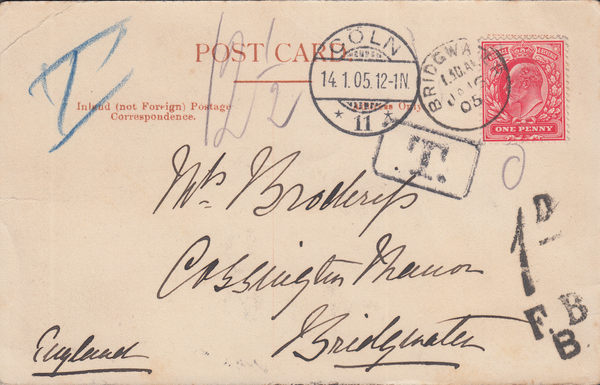 T
12½
POST CARD
CÖLN
14.1.05.12-1N.
* 11 *
BRIDGWATER
JA 16
05
ONE PENNY
Inland (not Foreign) Postage Only
Correspondence.
T.
Mrs Broderip
Cossington Manor
Bridgwater
England
1D
F.B
B